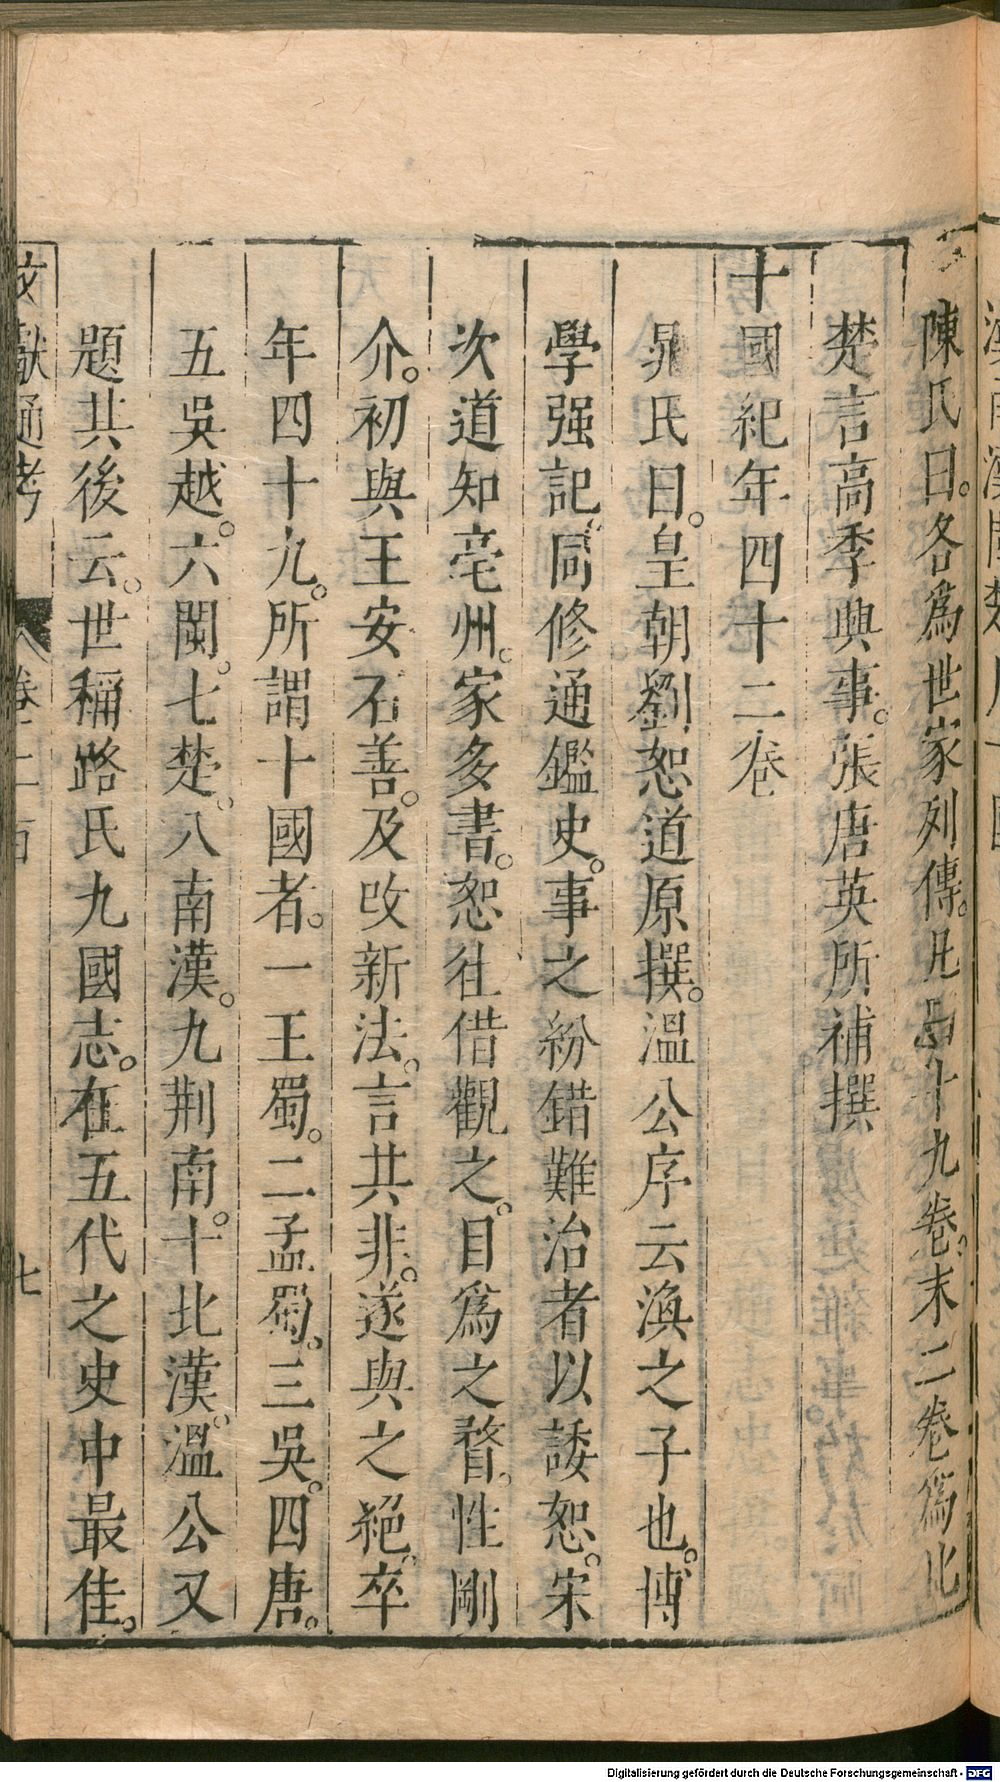 陳氏曰。各爲世家列傳。凡四十九卷。末二卷爲北
楚言高季興事。張唐英所補撰
十國紀年四十二卷
晁氏曰。皇朝劉恕道原撰。溫公序云渙之子也。博
學强記。同修通鑑史。事之紛錯難治者以諉恕。宋
次道知亳州。家多書。恕往借觀之。目爲之瞀。性剛
介。初與王安石善。及改新法。言共非。遂與之絕。卒
年四十九。所謂十國者。一王蜀。二孟蜀。三吳。四唐。
五吳越。六閩。七楚。八南漢。九荆南。十北漢。溫公又
題共後云。世稱路氏九國志。在五代之史中最佳。
文獻通考 卷二百 七
Digitalisierung gefördert durch die Deutsche Forschungsgemeinschaft - DFG